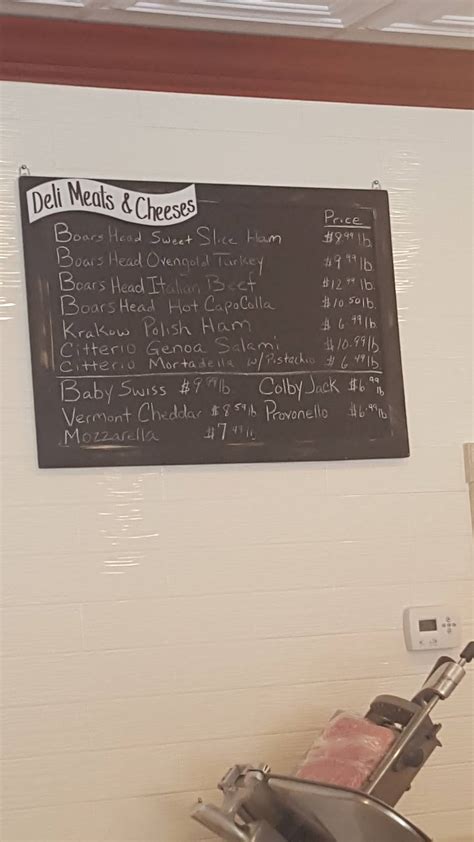 Deli Meats & Cheeses
Price
Boars Head Sweet Slice Ham $8.99 lb
Boars Head Ovengold Turkey $9.99 lb
Boars Head Italian Beef $12.99 lb
Boars Head Hot CapoColla $10.50 lb
Krakow Polish Ham $6.99 lb
Citterio Genoa Salami $10.99 lb
Citterio Mortadella w/Pistachio $6.49 lb
Baby Swiss $9.99 lb Colby Jack $6.99 lb
Vermont Cheddar $8.59 lb Provonello $6.99 lb
Mozzarella $7.49 lb